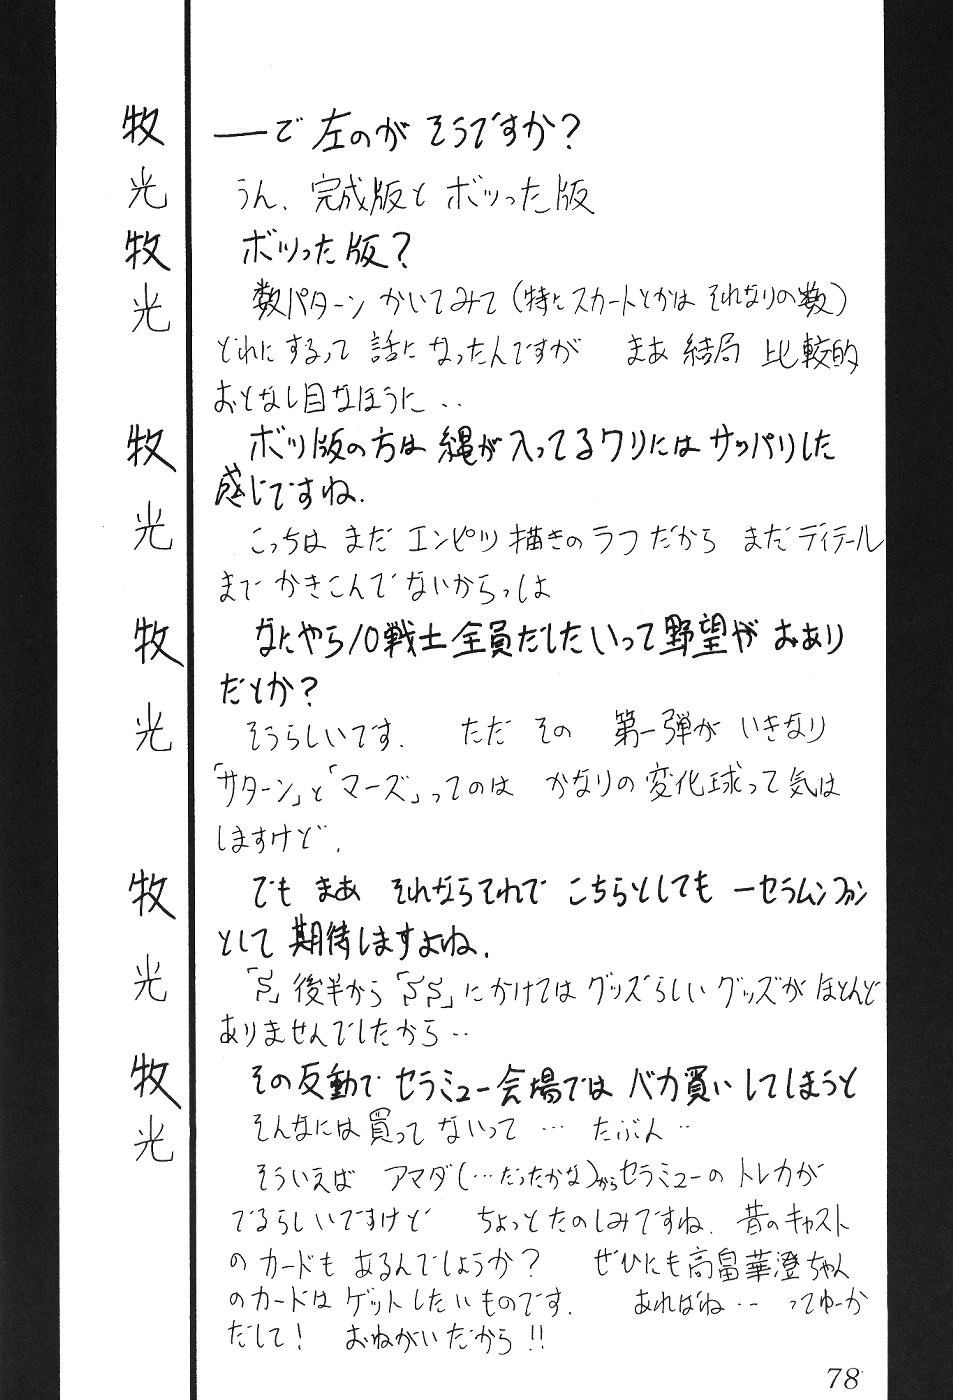 牧 ――で 左のが そうですか?
光 うん、完成版と ボツった版
牧 ボツった版?
光 数パターン かいてみて(特に スカートとかは それなりの数)
どれにするって 話になったんですが まあ 結局 比較的
おとなし目なほうに‥
牧 ボツ版の方は 縄が入ってるワリにはサッパリした
感じですね.
光 こっちは まだ エンピツ描きのラフだから まだディテール
まで かきこんでないからっしょ
牧 なにやら10戦士全員だしたいって野望が おあり
だとか?
光 そうらしいです. ただ その 第一弾が いきなり
「サターン」と「マーズ」ってのは かなりの変化球って気は
しますけど.
牧 でも まあ それならそれで こちらとしても 一セラムンファン
として 期待しますよね.
光 「S」後半から「SS」にかけては グッズらしい グッズが ほとんど
ありませんでしたから‥
牧 その反動で セラミュー会場では バカ買いしてしまうと
光 そんなには買ってないって … たぶん‥
そういえば アマダ(…だったかな)からセラミューの トレカが
でるらしいですけど ちょっとたのしみですね. 昔のキャスト
のカードも あるんでしょうか? ぜひにも高畠華澄ちゃん
のカードは ゲットしたいものです. あればね‥ ― ってゆーか
だして! おねがいだから!!
78